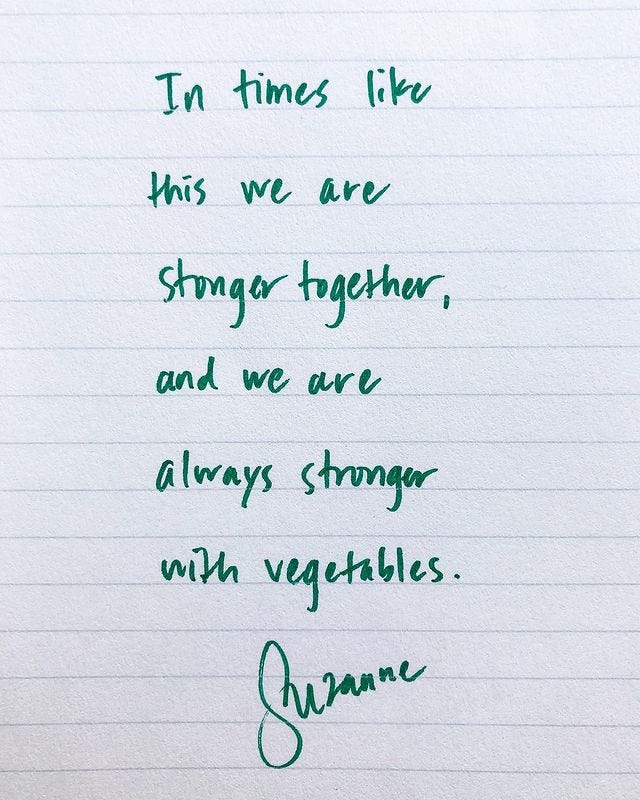 In times like
this we are
stonger together,
and we are
always stronger
with vegetables.
Suzanne